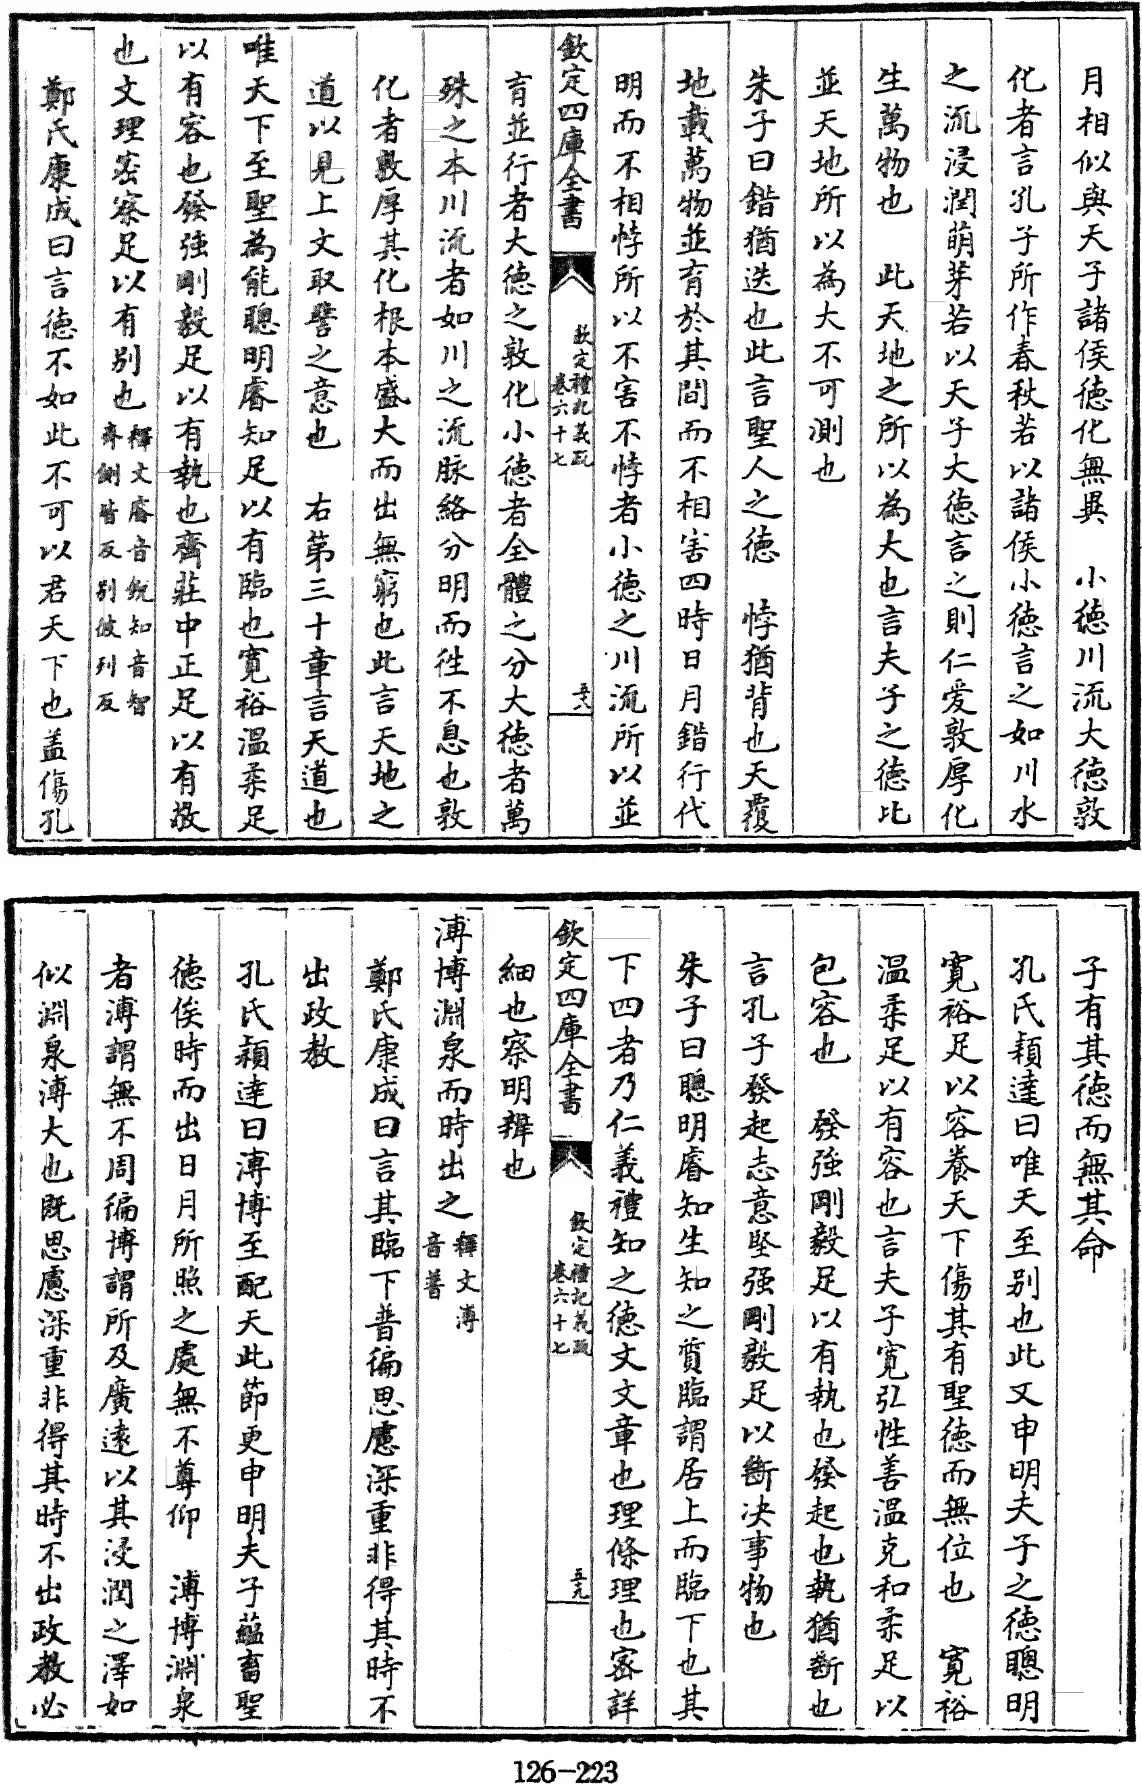 月相似與天子諸侯德化無異　小德川流大德敦
化者言孔子所作春秋若以諸侯小德言之如川水
之流浸潤萌芽若以天子大德言之則仁愛敦厚化
生萬物也　此天地之所以為大也言夫子之德比
並天地所以為大不可測也
朱子曰錯猶迭也此言聖人之德　悖猶背也天覆
地載萬物並育於其間而不相害四時日月錯行代
明而不相悖所以不害不悖者小德之川流所以並
欽定四庫全書
欽定禮記義疏
卷六十七
五八
育並行者大德之敦化小德者全體之分大德者萬
殊之本川流者如川之流脉絡分明而徃不息也敦
化者敦厚其化根本盛大而出無窮也此言天地之
道以見上文取譬之意也　右第三十章言天道也
唯天下至聖為能聰明睿知足以有臨也寛裕溫柔足
以有容也發強剛毅足以有執也齊莊中正足以有敬
也文理密察足以有別也釋文睿音銳知音智
齊側皆反別彼列反
鄭氏康成曰言德不如此不可以君天下也盖傷孔
子有其德而無其命
孔氏穎達曰唯天至别也此又申明夫子之德聰明
寛裕足以容養天下傷其有聖德而無位也　寛裕
溫柔足以有容也言夫子寛弘性善溫克和柔足以
包容也　發強剛毅足以有執也發起也執猶斷也
言孔子發起志意堅强剛毅足以斷决事物也
朱子曰聰明睿知生知之質臨謂居上而臨下也其
下四者乃仁義禮知之德文文章也理條理也密詳
欽定四庫全書
欽定禮記義疏
卷六十七
五九
細也察明辨也
溥博淵泉而時出之釋文溥
音普
鄭氏康成曰言其臨下普徧思慮深重非得其時不
出政教
孔氏穎達曰溥博至配天此節更申明夫子蘊畜聖
德俟時而出日月所照之處無不尊仰　溥博淵泉
者溥謂無不周徧博謂所及廣遠以其浸潤之澤如
似淵泉溥大也既思慮深重非得其時不出政教必
126-223